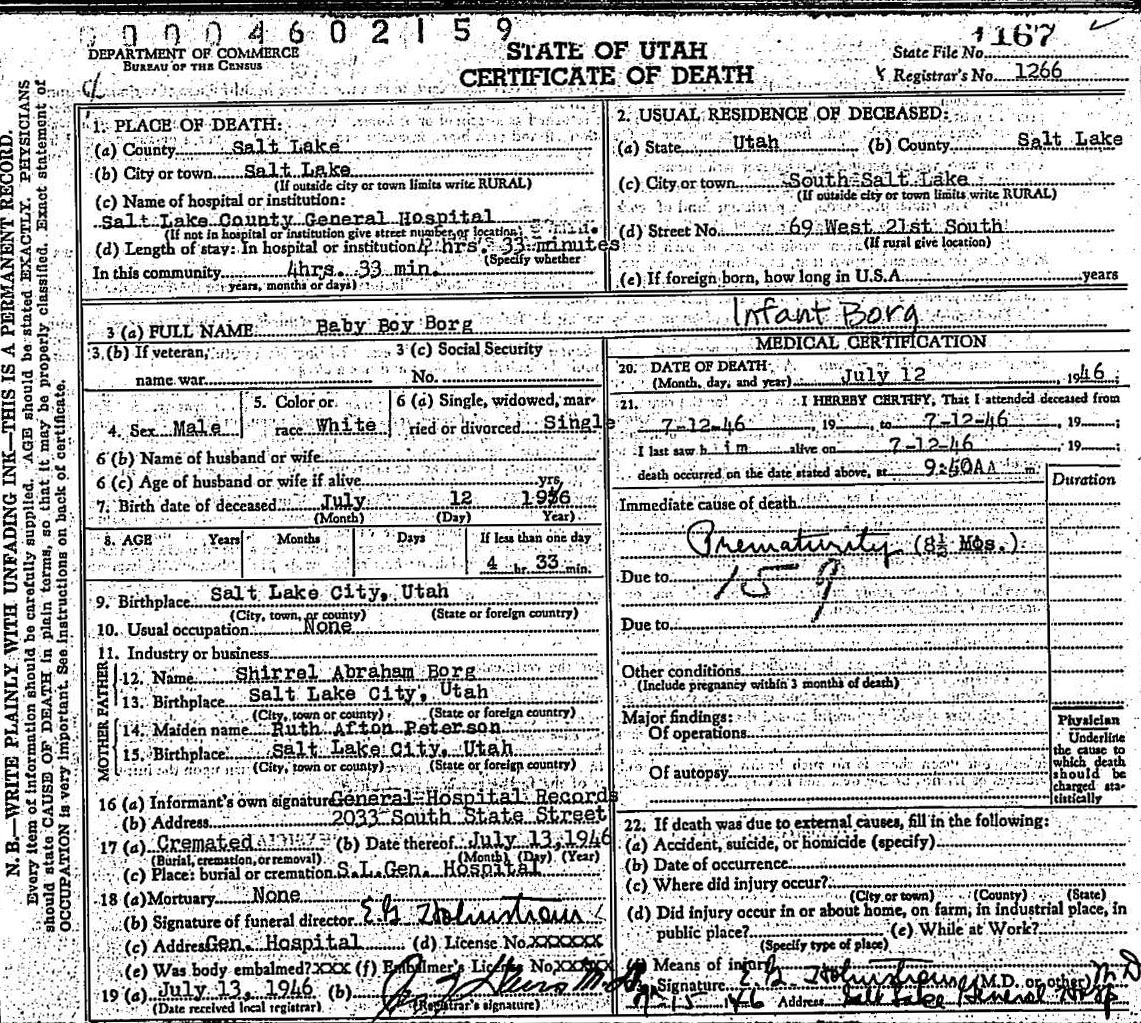 0004602159
DEPARTMENT OF COMMERCE
BUREAU OF THE CENSUS
STATE OF UTAH
CERTIFICATE OF DEATH
State File No. 1167
Registrar's No. 1266
N. B.—WRITE PLAINLY WITH UNFADING INK—THIS IS A PERMANENT RECORD.
Every item of information should be carefully supplied. AGE should be stated EXACTLY. PHYSICIANS
should state CAUSE OF DEATH in plain terms, so that it may be properly classified. Exact statement of
OCCUPATION is very important. See instructions on back of certificate.
1. PLACE OF DEATH:
(a) County Salt Lake
(b) City or town Salt Lake
(If outside city or town limits write RURAL)
(c) Name of hospital or institution:
Salt Lake County General Hospital
(If not in hospital or institution give street number or location)
(d) Length of stay: In hospital or institution 4 hrs. 33 minutes
(Specify whether
In this community 4hrs. 33 min.
years, months or days)
2. USUAL RESIDENCE OF DECEASED:
(a) State Utah (b) County Salt Lake
(c) City or town South Salt Lake
(If outside city or town limits write RURAL)
(d) Street No. 69 West 21st South
(If rural give location)
(e) If foreign born, how long in U.S.A. years
3 (a) FULL NAME Baby Boy Borg Infant Borg
3. (b) If veteran, 3 (c) Social Security
name war No.
4. Sex Male 5. Color or race White 6 (a) Single, widowed, married or divorced Single
6 (b) Name of husband or wife
6 (c) Age of husband or wife if alive yrs.
7. Birth date of deceased July 12 1946
(Month) (Day) Year)
8. AGE Years Months Days If less than one day
4 hr. 33 min.
9. Birthplace Salt Lake City, Utah
(City, town, or county) (State or foreign country)
10. Usual occupation None
11. Industry or business
FATHER
12. Name Shirrel Abraham Borg
13. Birthplace Salt Lake City, Utah
(City, town or county) (State or foreign country)
MOTHER
14. Maiden name Ruth Afton Peterson
15. Birthplace Salt Lake City, Utah
(City, town or county) (State or foreign country)
16 (a) Informant's own signature General Hospital Records
(b) Address 2033 South State Street
17 (a) Cremated (b) Date thereof July 13, 1946
(Burial, cremation, or removal) (Month) (Day) (Year)
(c) Place: burial or cremation S.L.Gen. Hospital
18 (a) Mortuary None
(b) Signature of funeral director
(c) Addres Gen. Hospital (d) License No. XXXXXX
(e) Was body embalmed? XXX (f) Embalmer's License No. XXXXX
19 (a) July 13, 1946 (b)
(Date received local registrar) (Registrar's signature)
MEDICAL CERTIFICATION
20. DATE OF DEATH
(Month, day, and year) July 12, 1946
21. I HEREBY CERTIFY, That I attended deceased from
7-12-46, 19 , to 7-12-46, 19 ;
I last saw h im alive on 7-12-46 19 ;
death occurred on the date stated above, at 9:40AA m.
Duration
Immediate cause of death
Prematurity (8½ Mos.)
Due to 159
Due to
Other conditions
(Include pregnancy within 3 months of death)
Major findings:
Of operations
Of autopsy
Physician
Underline
the cause to
which death
should be
charged sta-
tistically
22. If death was due to external causes, fill in the following:
(a) Accident, suicide, or homicide (specify)
(b) Date of occurrence
(c) Where did injury occur?
(City or town) (County) (State)
(d) Did injury occur in or about home, on farm, in industrial place, in
public place? (e) While at Work?
(Specify type of place)
Means of injury
Signature (M.D. or other) M D
7-15-46 Address Salt Lake General Hosp